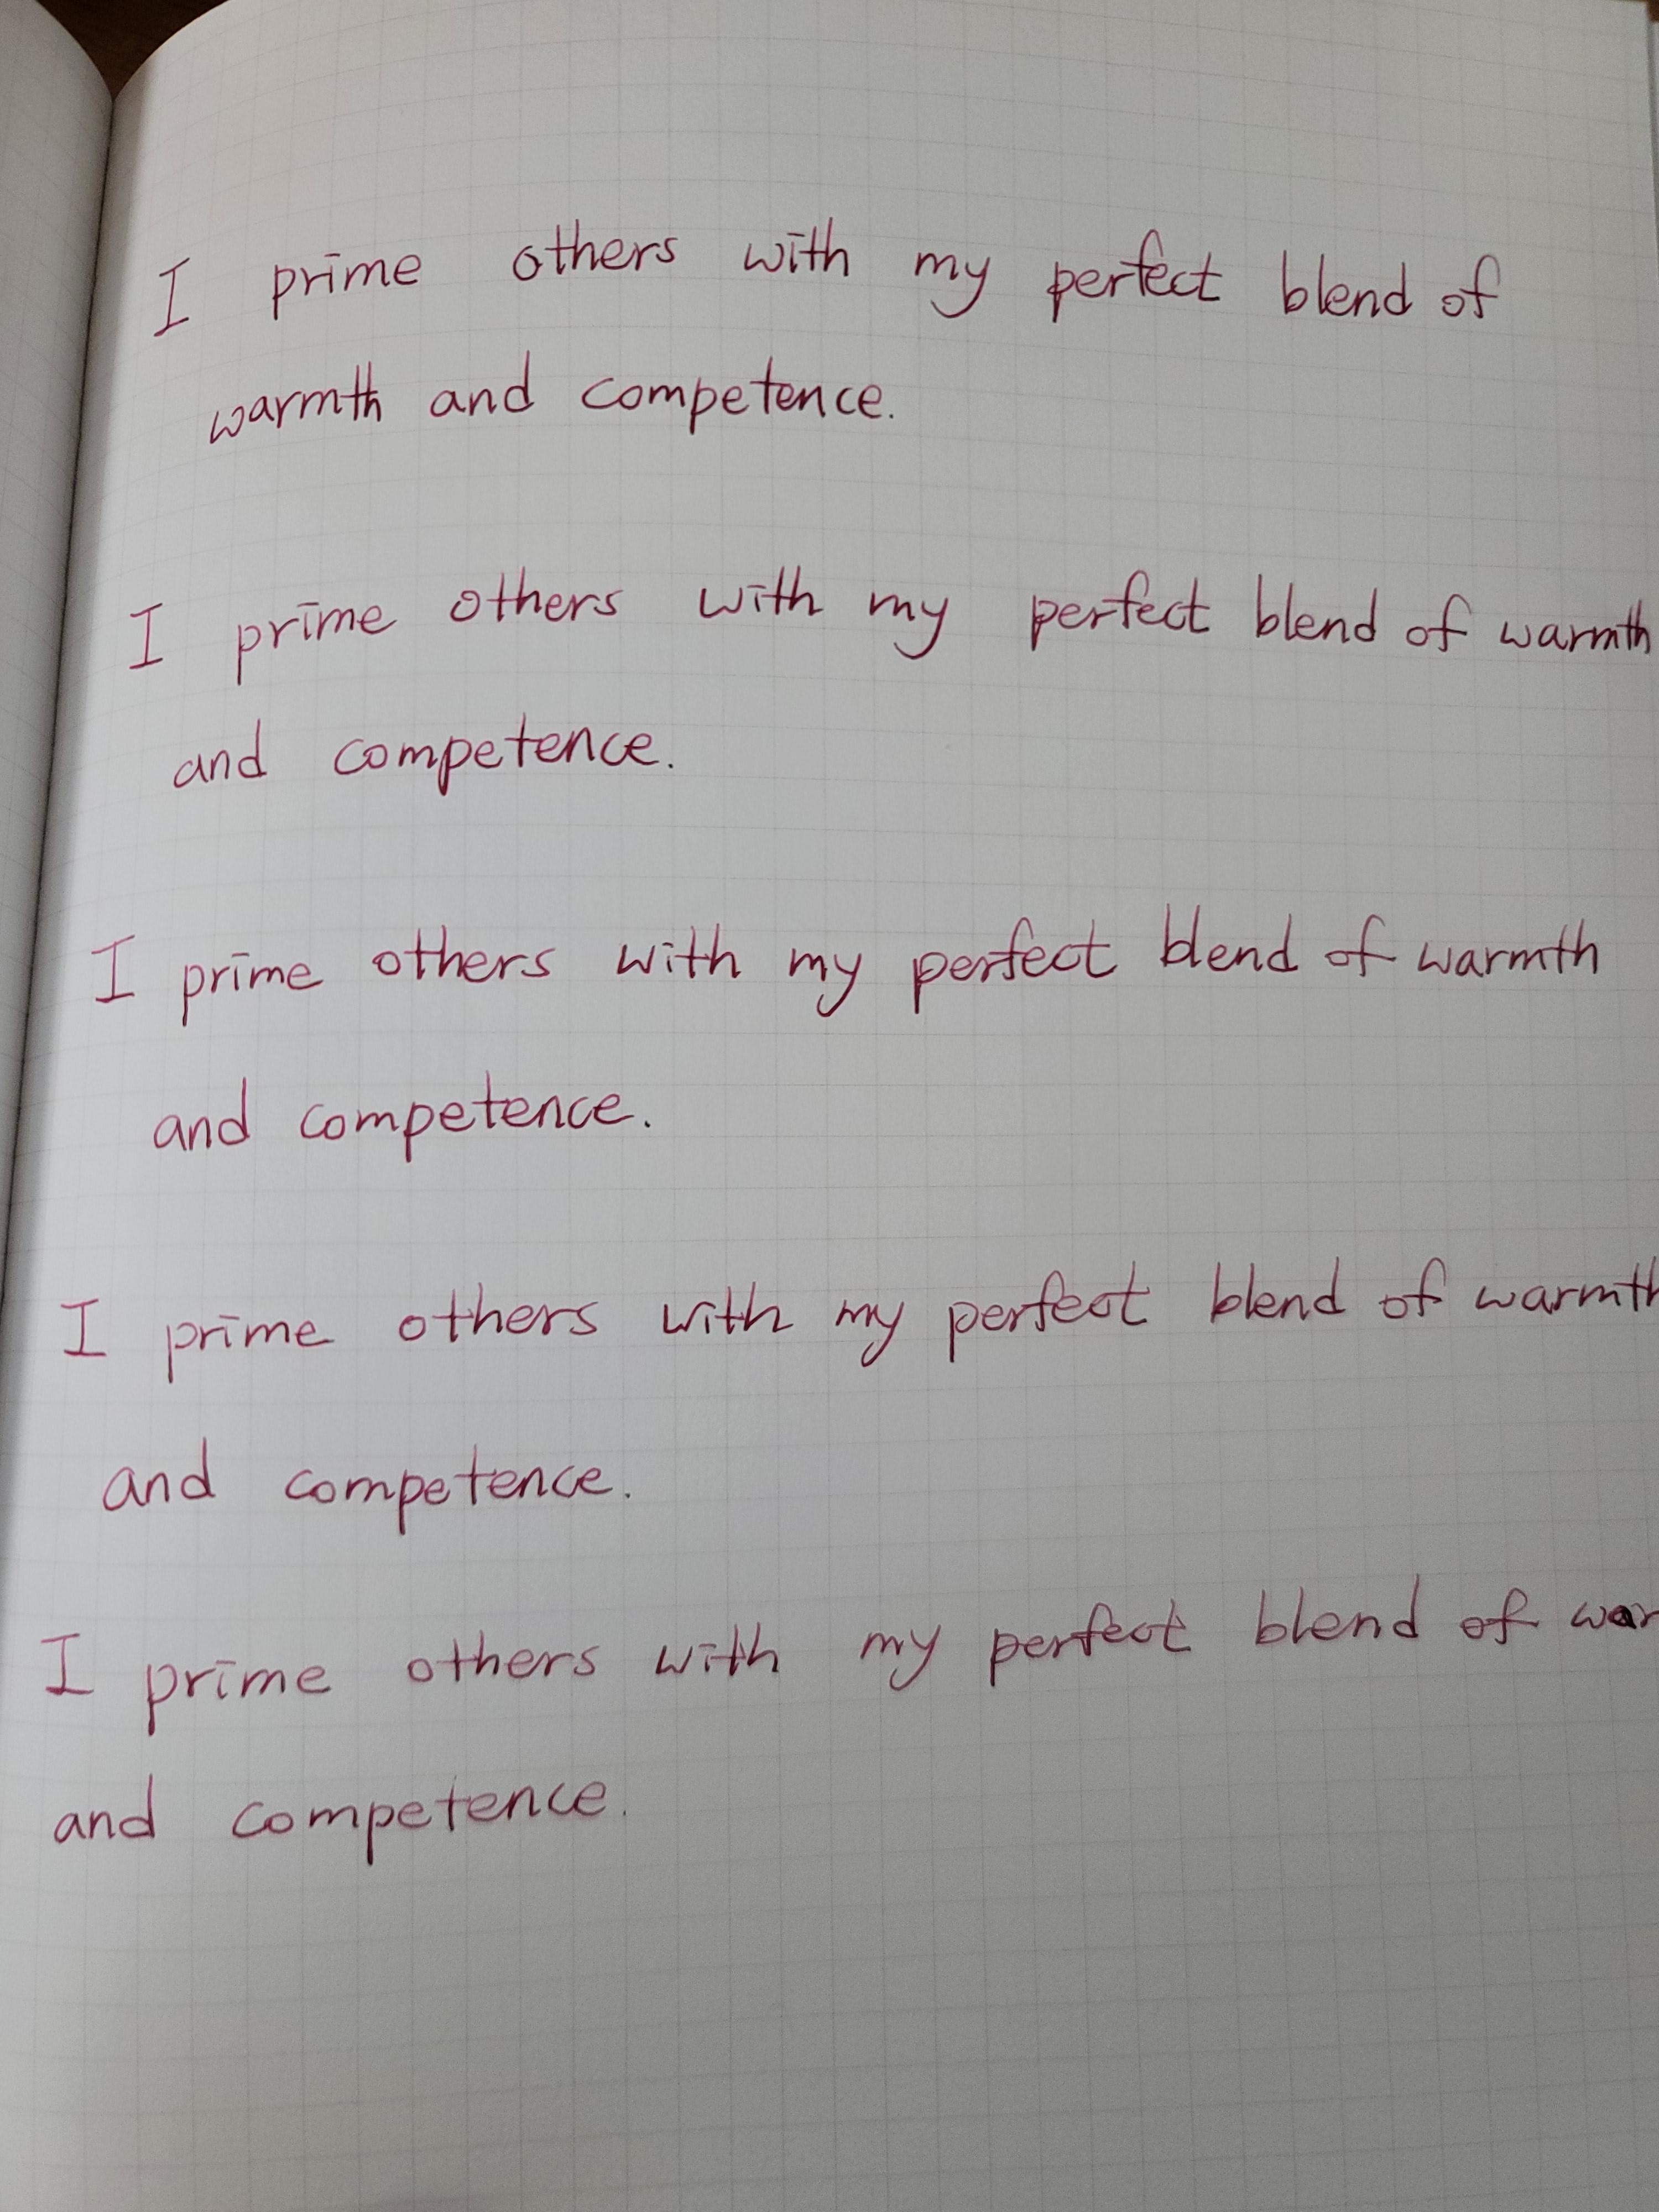 I prime others with my perfect blend of
warmth and competence.
I prime others with my perfect blend of warmth
and competence.
I prime others with my perfect blend of warmth
and competence.
I prime others with my perfect blend of warmth
and competence.
I prime others with my perfect blend of
and competence.